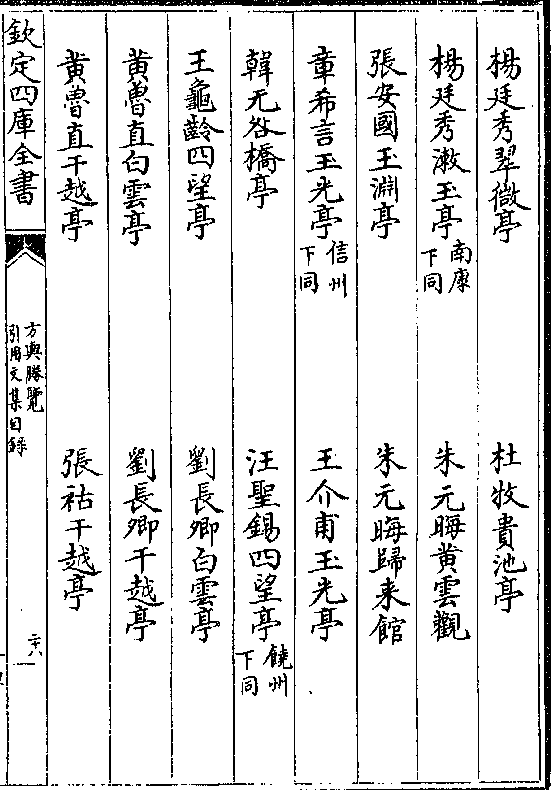 楊廷秀翠微亭　杜牧貴池亭
楊廷秀漱玉亭南康下同　朱元晦黄雲觀
張安國玉淵亭　朱元晦歸来館
章希言玉光亭信州下同　王介甫玉光亭
韓无咎橋亭　汪聖錫四望亭饒州下同
王龜齡四望亭　劉長卿白雲亭
黄魯直白雲亭　劉長卿干越亭
黄魯直干越亭　張祜干越亭
欽定四庫全書
方輿勝覽
引用文集目録
二十八